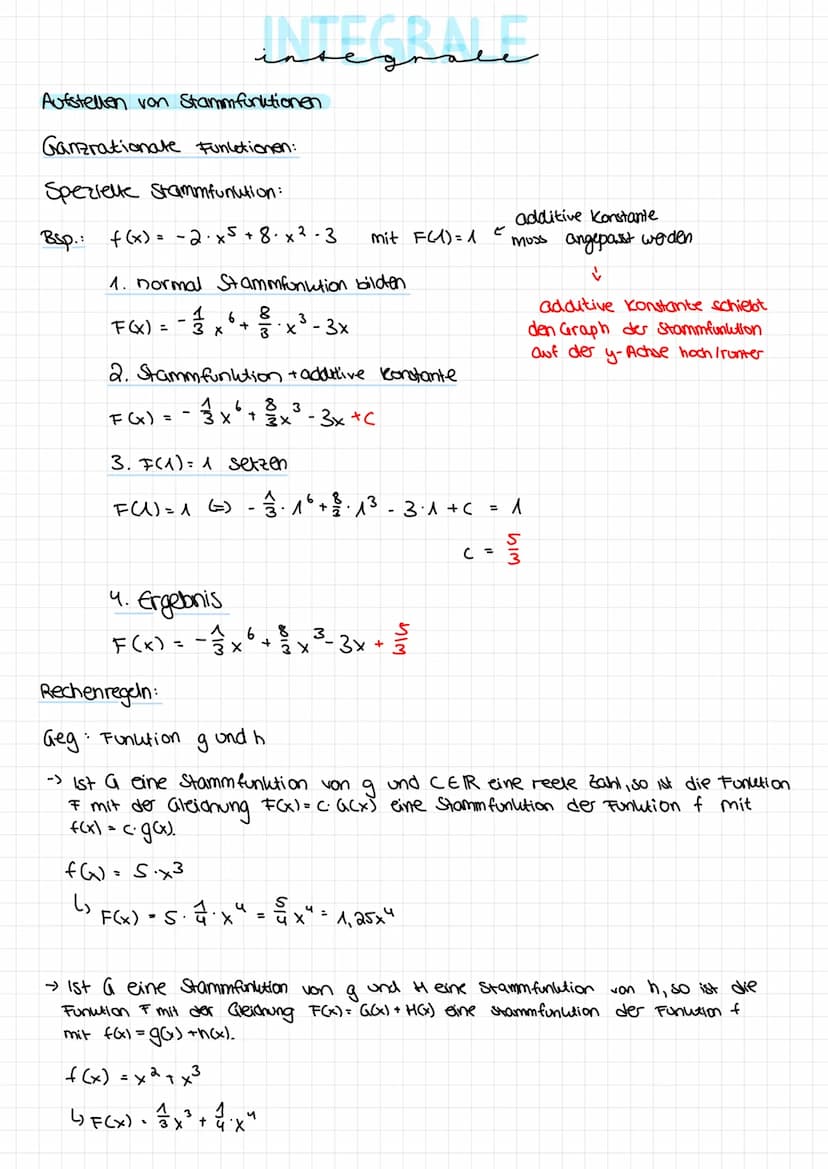 INTEGRALE
integrale
Aufstellen von Stammfunktionen
Ganzrationale Funktionen:
Spezielle Stammfunktion:
additive Konstante
Bsp.: f(x) = -2·x⁵ + 8·x² - 3 mit F(1) = 1 ← muss angepasst werden
↓
1. normal Stammfunktion bilden
additive Konstante schiebt
F(x) = -1/3 x⁶ + 8/3 · x³ - 3x
den Graph der Stammfunktion
auf der y-Achse hoch/runter
2. Stammfunktion + additive Konstante
F(x) = -1/3 x⁶ + 8/3 x³ - 3x +c
3. F(1) = 1 setzen
F(1) = 1 (=) -1/3 · 1⁶ + 8/3 · 1³ - 3·1 + c = 1
c = 5/3
4. Ergebnis
F(x) = -1/3 x⁶ + 8/3 x³ - 3x + 5/3
Rechenregeln:
Geg: Funktion g und h
-> Ist G eine Stammfunktion von g und C∈R eine reele Zahl, so ist die Funktion
F mit der Gleichung F(x) = c·G(x) eine Stammfunktion der Funktion f mit
f(x) = c·g(x).
f(x) = 5·x³
↳ F(x) = 5 · 1/4 · x⁴ = 5/4 x⁴ = 1,25x⁴
→ Ist G eine Stammfunktion von g und H eine Stammfunktion von h, so ist die
Funktion F mit der Gleichung F(x) = G(x) + H(x) eine Stammfunktion der Funktion f
mit f(x) = g(x) + h(x).
f(x) = x² + x³
↳ F(x) = 1/3 x³ + 1/4 · x⁴